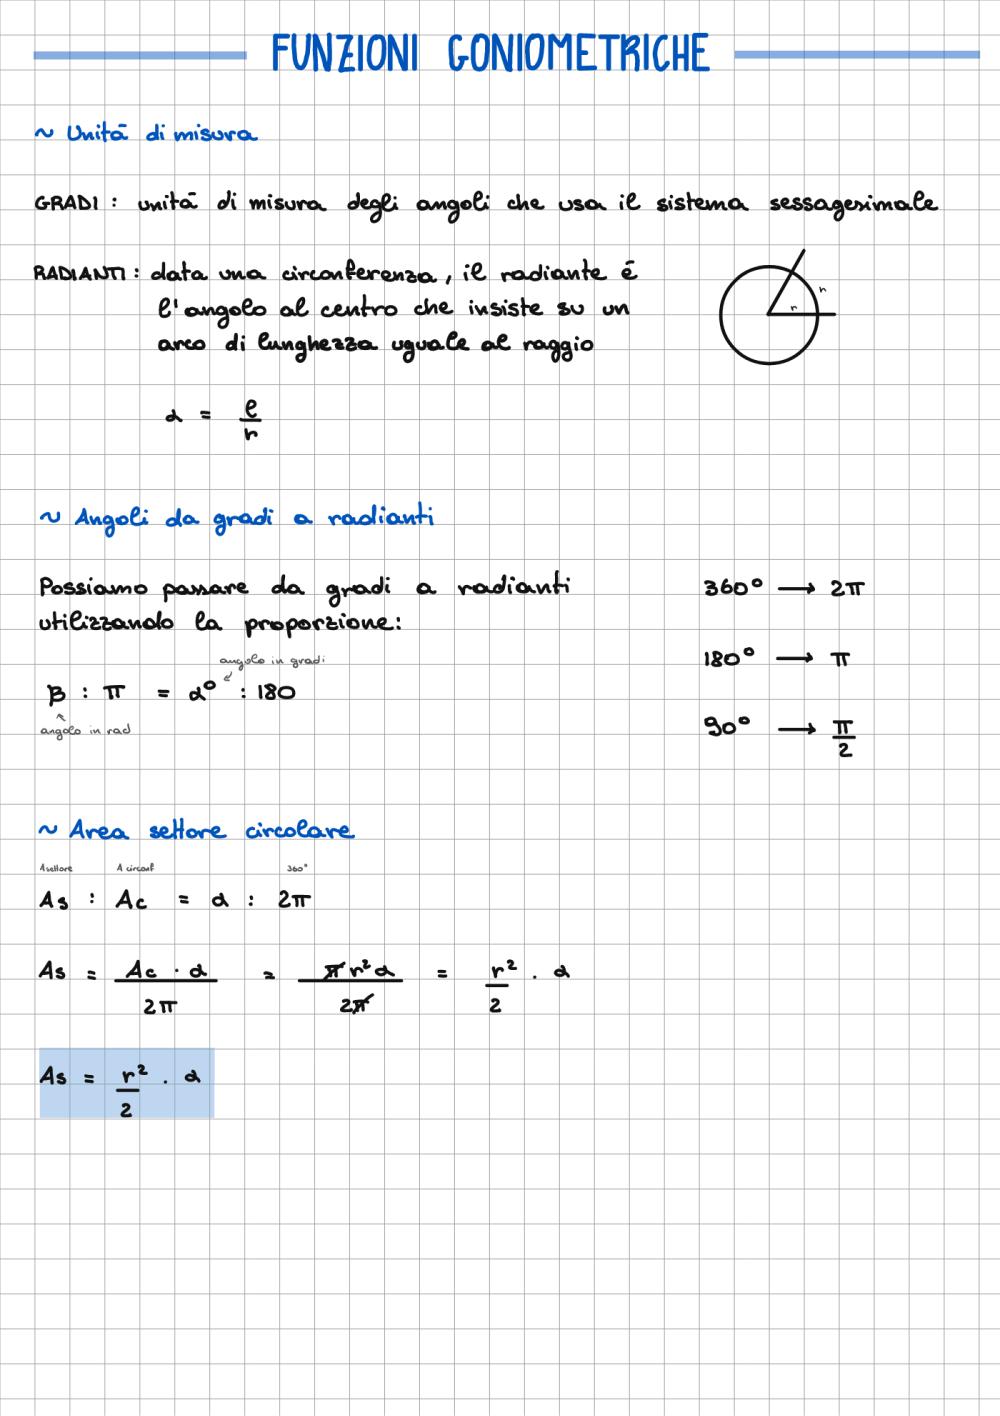 FUNZIONI GONIOMETRICHE
~ Unitā di misura
GRADI : unitā di misura degli angoli che usa il sistema sessagesimale
RADIANTI : data una circonferenza, il radiante é
l'angolo al centro che insiste su un
arco di lunghezza uguale al raggio
r
r
α = l/r
~ Angoli da gradi a radianti
Possiamo passare da gradi a radianti
utilizzando la proporzione:
angolo in gradi
β : π = α° : 180
angolo in rad
360° → 2π
180° → π
90° → π/2
~ Area settore circolare
Asettore A circonf 360°
As : Ac = α : 2π
As = Ac · α / 2π = πr²α / 2π = r²/2 · α
As = r²/2 · α